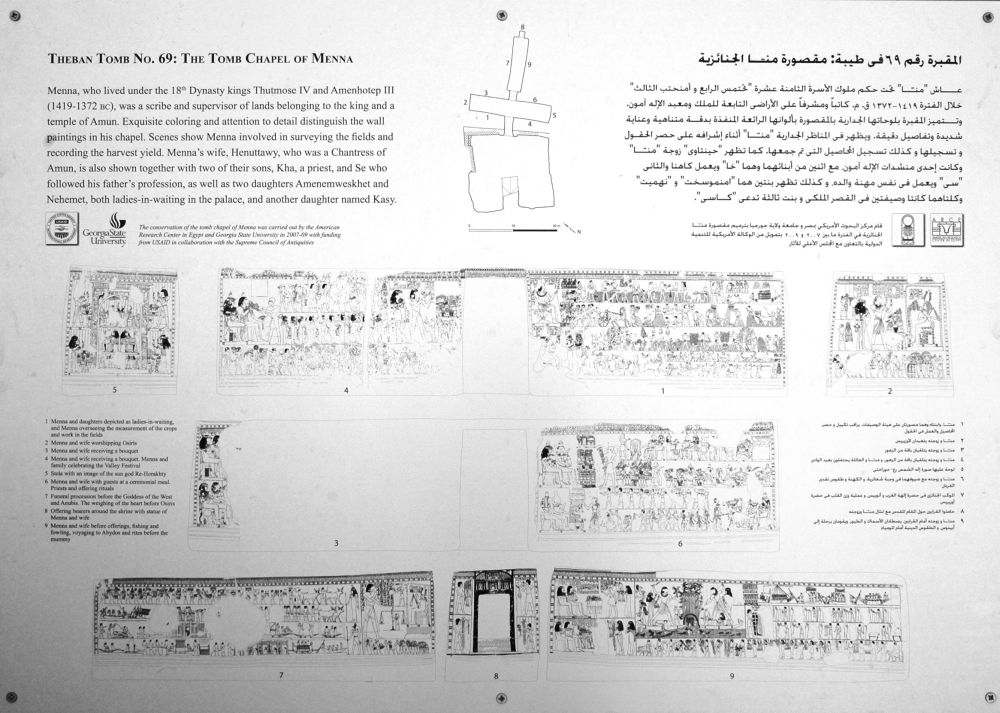 THEBAN TOMB NO. 69: THE TOMB CHAPEL OF MENNA
Menna, who lived under the 18th Dynasty kings Thutmose IV and Amenhotep III
(1419-1372 BC), was a scribe and supervisor of lands belonging to the king and a
temple of Amun. Exquisite coloring and attention to detail distinguish the wall
paintings in his chapel. Scenes show Menna involved in surveying the fields and
recording the harvest yield. Menna's wife, Henuttawy, who was a Chantress of
Amun, is also shown together with two of their sons, Kha, a priest, and Se who
followed his father's profession, as well as two daughters Amenemweskhet and
Nehemet, both ladies-in-waiting in the palace, and another daughter named Kasy.
GeorgiaState
University
The conservation of the tomb chapel of Menna was carried out by the American
Research Center in Egypt and Georgia State University in 2007-09 with funding
from USAID in collaboration with the Supreme Council of Antiquities
8
7
9
3
6
2
1
5
4
المقبرة رقم ٦٩ فى طيبة: مقصورة منـــا الجنائزية
عـــاش "منـــا" تحت حكم ملوك الأسرة الثامنة عشرة "تحتمس الرابع و أمنحتب الثالث"
خلال الفترة ١٤١٩-١٣٧٢ ق. م. كاتباً ومشرفاً على الأراضى التابعة للملك ومعبد الإله آمون.
وتتميز المقبرة بلوحاتها الجدارية بالمقصورة بألوانها الرائعة المنفذة بدقــة متناهية وعناية
شديدة وتفاصيل دقيقة. ويظهر فى المناظر الجدارية "منـــا" أثناء إشرافه على حصر الحقول
و تسجيلها و كذلك تسجيل المحاصيل التى تم جمعها، كما تظهر "حينتاوى" زوجة "منـــا"
وكانت إحدى منشدات الإله آمون، مع اثنين من أبنائهما وهما "خا" ويعمل كاهنا والثانى
"سى" ويعمل فى نفس مهنة والده. و كذلك تظهر بنتين هما "امنموسخت" و "نهميت"
وكلتاهما كانتا وصيفتين فى القصر الملكى و بنت ثالثة تدعى "كــاسى".
قام مركز البحوث الأمريكى بمصر و جامعة ولاية جورجيا بترميم مقصورة منـــا
الجنائزية فى الفترة ما بين ٢٠٠٧ و ٢٠٠٩ بتمويل من الوكالة الأمريكية للتنمية
الدولية بالتعاون مع المجلس الأعلي للآثار
5
4
1
2
1 Menna and daughters depicted as ladies-in-waiting,
and Menna overseeing the measurement of the crops
and work in the fields
2 Menna and wife worshipping Osiris
3 Menna and wife receiving a bouquet
4 Menna and wife receiving a bouquet. Menna and
family celebrating the Valley Festival
5 Stela with an image of the sun god Re-Horakhty
6 Menna and wife with guests at a ceremonial meal.
Priests and offering rituals
7 Funeral procession before the Goddess of the West
and Anubis. The weighing of the heart before Osiris
8 Offering bearers around the shrine with statue of
Menna and wife
9 Menna and wife before offerings, fishing and
fowling, voyaging to Abydos and rites before the
mummy
3
6
7
8
9